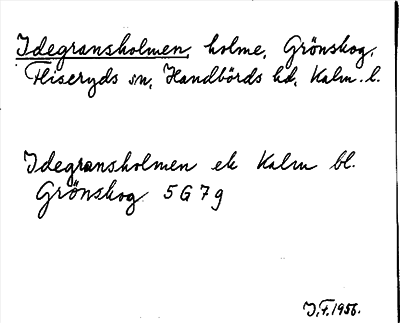 Idegransholmen, holme, Grönskog,
Fliseryds sn, Handbörds hd, Kalm. l.
Idegransholmen ek Kalm bl.
Grönskog 5 G 7 g
J.F. 1956.